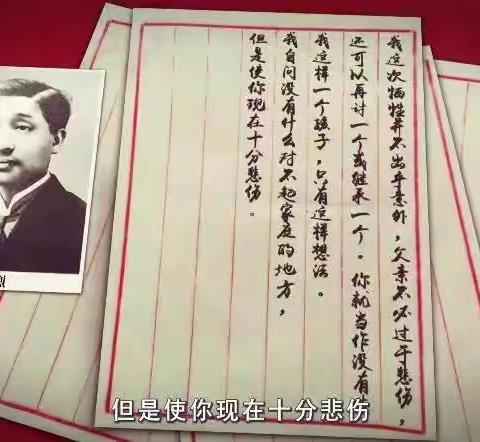 我这次牺牲并不出乎意外，父亲不必过于悲伤，
还可以再讨一个或继承一个。你就当作没有
我这样一个孩子，只有这样想法。
我自问没有什么对不起家庭的地方，
但是使你现在十分悲伤。
但是使你现在十分悲伤